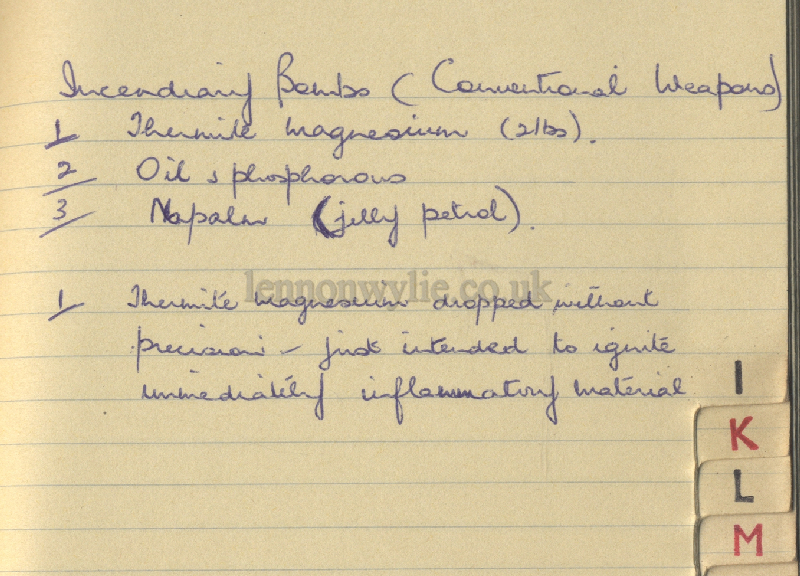 Incendiary Bombs (Conventional Weapons)
1 Thermite magnesium (2lbs).
2 Oil & phosphorous
3 Napalm (jelly petrol).
lennonwylie.co.uk
1 Thermite magnesium dropped without
precision - just intended to ignite
immediately inflammatory material
I
K
L
M